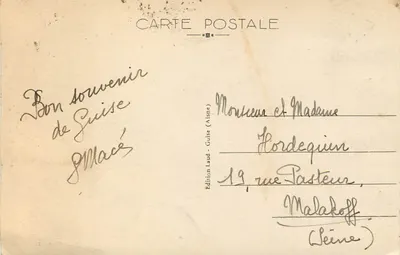 CARTE POSTALE
Bon souvenir
de Guise
GMacé
Edition Laud - Guise (Aisne)
Monsieur et Madame
Hordequin
19, rue Pasteur
Malakoff
(Seine)